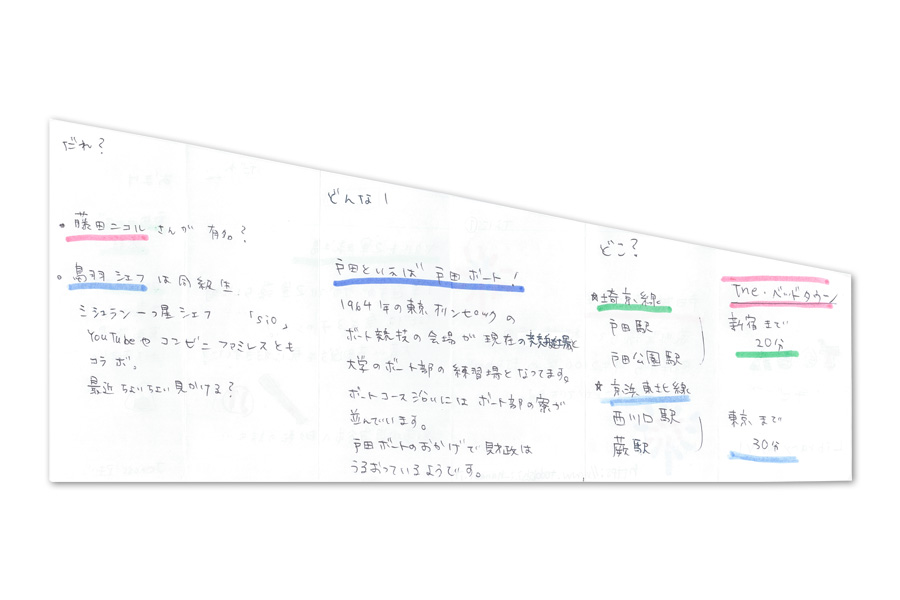 だれ?
・藤田ニコルさんが 有名?
・鳥羽シェフは同級生
ミシュラン一つ星シェフ 「sio」
YouTubeやコンビニファミレスとも
コラボ。
最近ちょいちょい見かける?
どんな!
戸田といえば 戸田ボート!
1964年の東京オリンピックの
ボート競技の会場が 現在の
大学のボート部の練習場となってます。
ボートコース沿いにはボート部の寮が
並んでいます。
戸田ボートのおかげで財政は
うるおっているようです。
どこ?
☆埼京線
戸田駅
戸田公園駅
☆京浜東北線
西川口駅
蕨駅
The・ベードタウン
新宿まで
20分
東京まで
30分